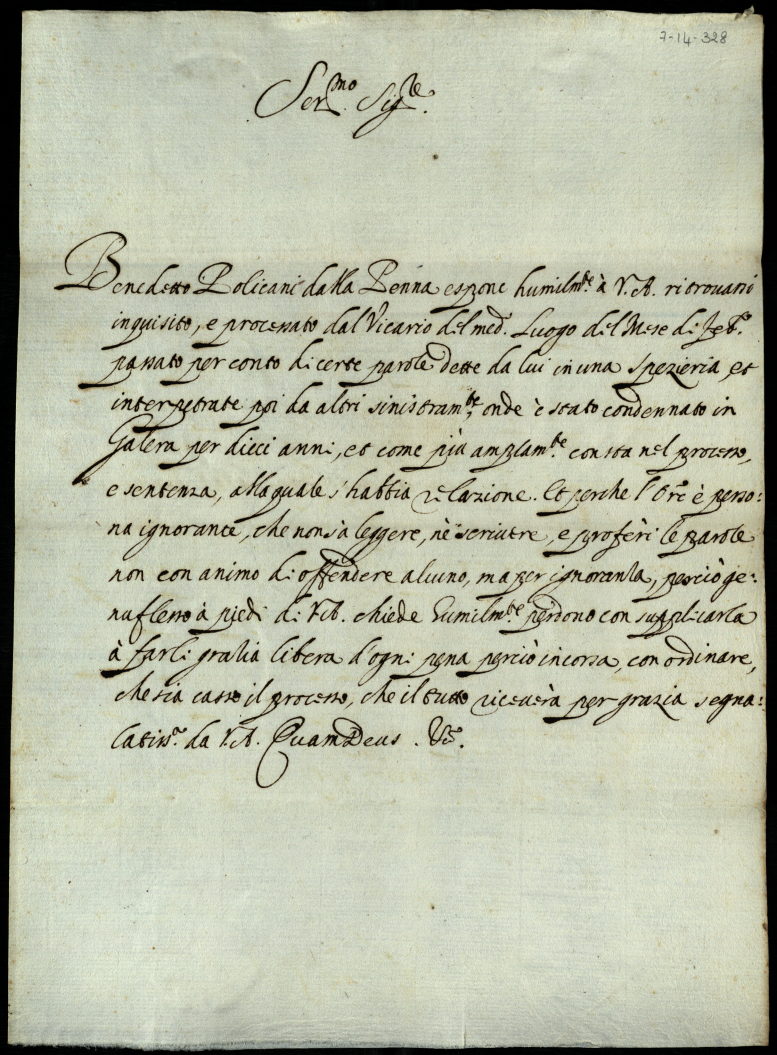 7-14-328
Ser.mo Sig.re
Benedetto Policani dalla Penna espone humilm.te à V.A. ritrovarsi
inquisito, e processato dal Vicario del med.o Luogo del Mese di Feb.o
passato per conto di certe parole dette da lui in una spezieria, et
interpetrate poi da altri sinistram.te onde è stato condennato in
Galera per dieci anni, et come più amplam.te consta nel processo,
e sentenza, alla quale s'habbia relazione. Et perche l'Ore è perso:
na ignorante, che non sà leggere, nè scrivere, e proferì le parole
non con animo di offendere alcuno, ma per ignoranza, perciò ge:
nuflesso à piedi di V.A. chiede humilm.te perdono con supplicarla
à farli grazia libera d'ogni pena perciò incorsa, con ordinare,
che sia casso il processo, che il tutto riceverà per grazia segna:
latiss.a da V.A. Quam Deus. &c.